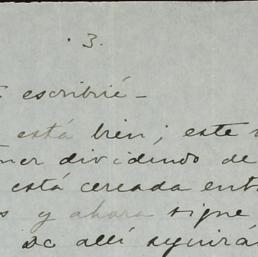 3.
escribié-
está bien; este
dividendo de
está cercada
y ahora sigue
de allí seguirá